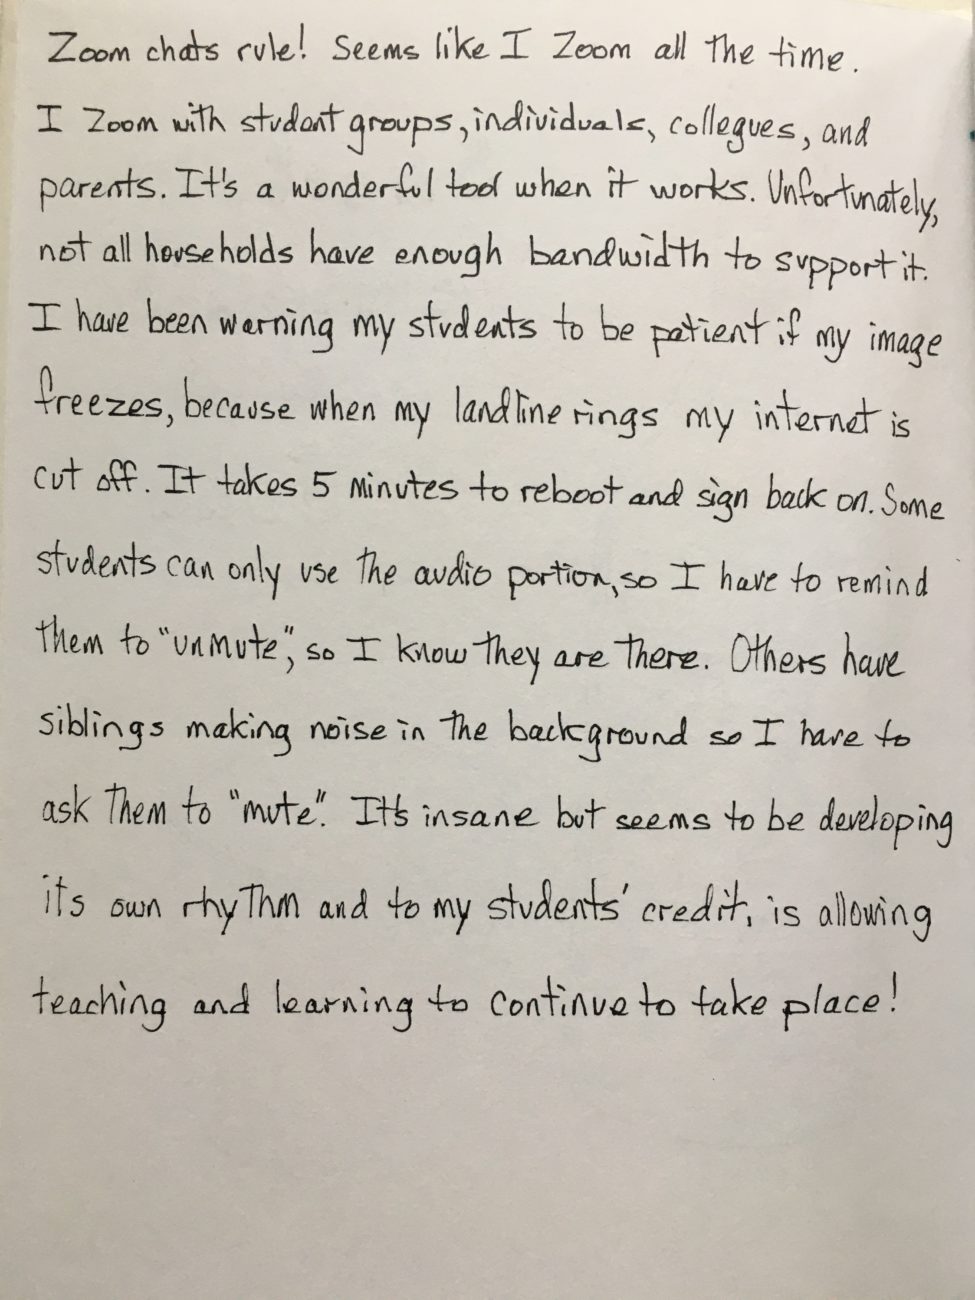 Zoom chats rule! Seems like I Zoom all the time.
I Zoom with student groups, individuals, collegues, and
parents. It's a wonderful tool when it works. Unfortunately,
not all households have enough bandwidth to support it.
I have been warning my students to be patient if my image
freezes, because when my landline rings my internet is
cut off. It takes 5 minutes to reboot and sign back on. Some
students can only use the audio portion, so I have to remind
them to "unmute", so I know they are there. Others have
siblings making noise in the background so I have to
ask them to "mute". It's insane but seems to be developing
its own rhythm and to my students' credit, is allowing
teaching and learning to continue to take place!